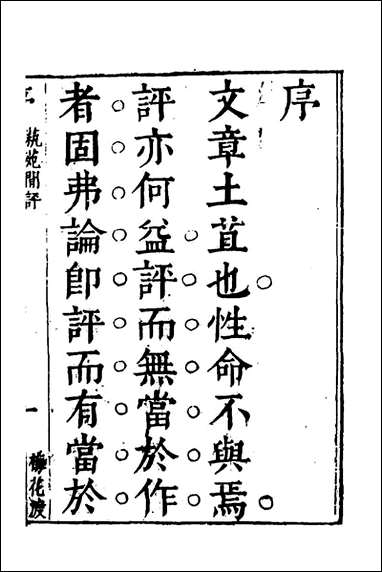 序
文章土苴也性命不與焉
評亦何益評而無當於作
者固弗論即評而有當於
序 藝苑閒評 一 梅花渡